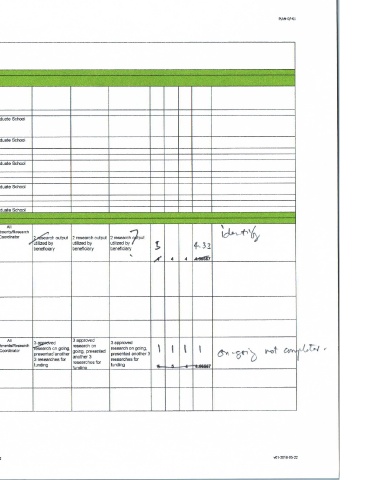 duate School
duate School
duate School
duate School
duate School
All
Coordinator
2 research output
utilized by
beneficiary
2 research output
utilized by
beneficiary
2 research output
utilized by
beneficiary
3
4.33
identify
4
4
All
Coordinator
3 approved
research on going,
presented another
3 researches for
funding
3 approved
research on
going, presented
another 3
researches for
funding
3 approved
research on going,
presented another 3
researches for
funding
1 1 1 1
on-going not completed.